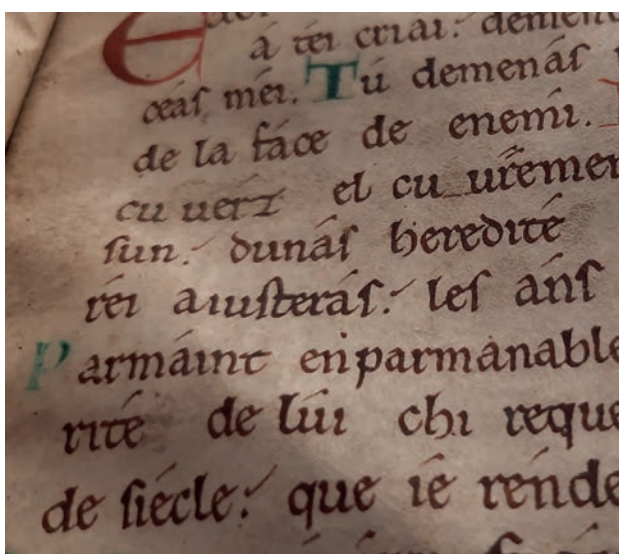 á tei criai. dement
ceas méi. Tú demenás
de la fáce de enemi.
cu uert el cu uremen
sun. dunás heredité
réi aiusterás. les ans
Parmáint enparmanable
rité de lúi chi reque
de siécle. que ié rende